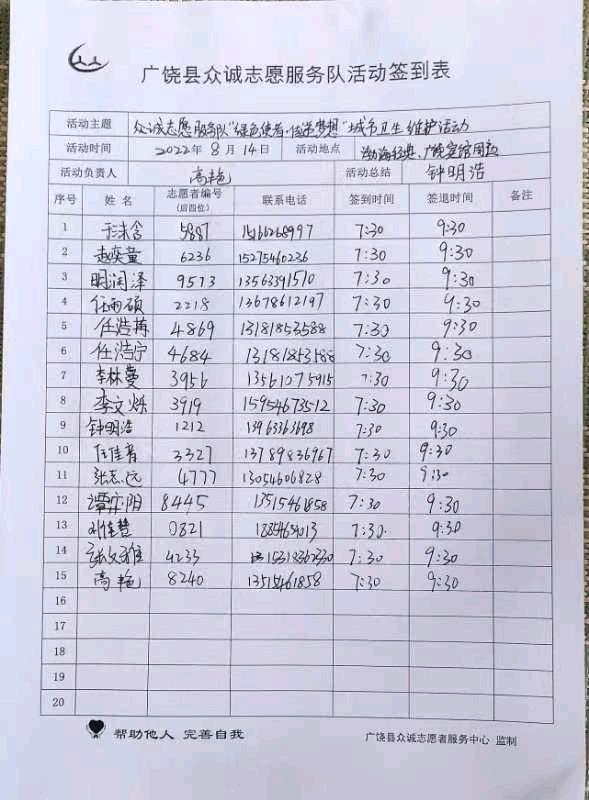 广饶县众诚志愿服务队活动签到表
活动主题 众诚志愿服务队"绿色使者·传递梦想"城市卫生维护活动
活动时间 2022年8月14日 活动地点 广饶宾馆周边
活动负责人 高艳 活动总结 钟明浩
序号 姓名 志愿者编号(后四位) 联系电话 签到时间 签退时间 备注
1 于沫含 5887 15166268997 7:30 9:30
2 赵奕童 6236 15275460236 7:30 9:30
3 明润泽 9513 13563391510 7:30 9:30
4 任雨硕 2218 13678612197 7:30 9:30
5 任浩栋 4869 13181853588 7:30 9:30
6 任浩宁 4684 13181853188 7:30 9:30
7 李林蔓 3956 13561075915 7:30 9:30
8 李文烁 3919 15954673512 7:30 9:30
9 钟明浩 1212 13963363698 7:30 9:30
10 任佳音 3327 13789836967 7:30 9:30
11 张志远 4777 13054606828 7:30 9:30
12 谭庆阳 8445 13515461858 7:30 9:30
13 刘佳慧 0821 7:30 9:30
14 4233 7:30 9:30
15 高艳 8240 13515461858 7:30 9:30
16
17
18
19
20
帮助他人 完善自我 广饶县众诚志愿者服务中心 监制